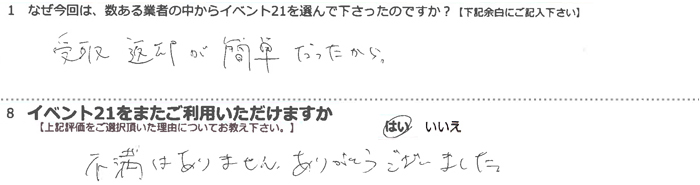 1 なぜ今回は、数ある業者の中からイベント21を選んで下さったのですか？【下記余白にご記入下さい】
受取 返却が簡単だったから。
8 イベント21をまたご利用いただけますか
【上記評価をご選択頂いた理由についてお教え下さい。】 はい いいえ
不満はありません。ありがとうございました。